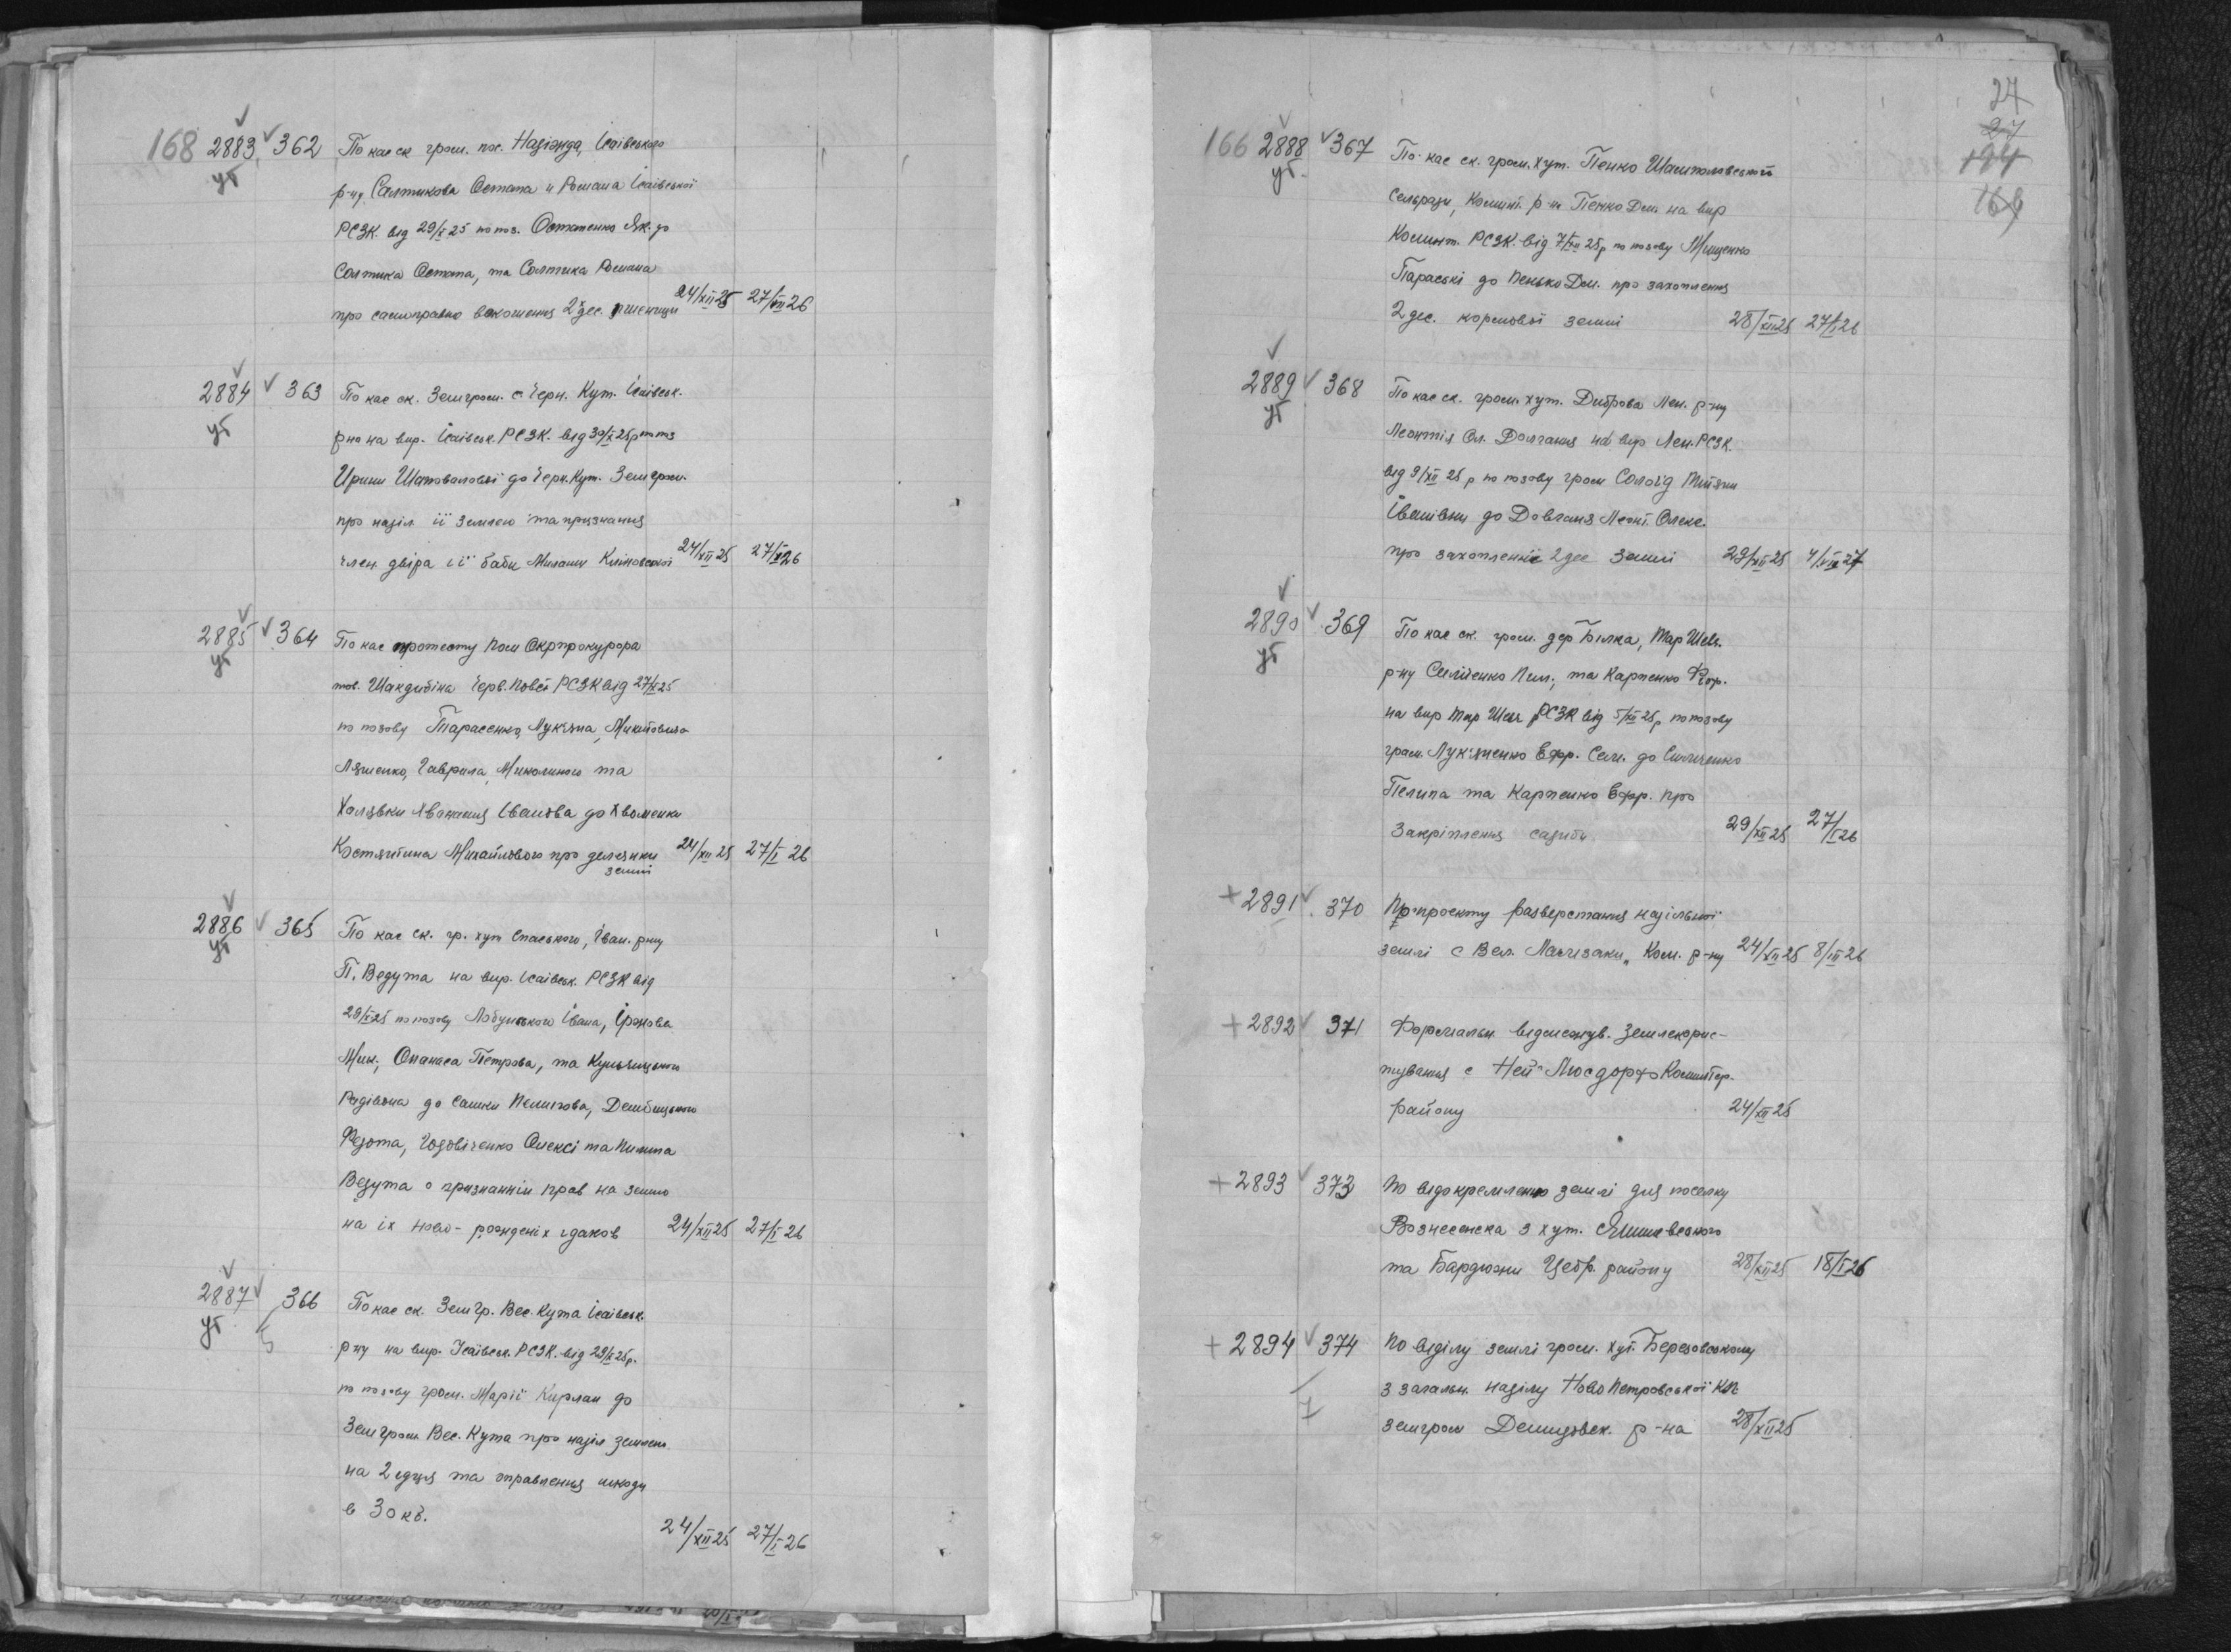 168 2883 362 По кас ск. гром. пос. Надіянда, Ісаівського
уг р-ну Салтикова Остапа и Романа Ісаівської
РСЗК. від 29/X 25 по поз. Остапенко Як. до
Салтика Остапа, та Салтика Романа
про самоправно вкошення 2 дес. пшениці 24/XII 25 27/VII 26
2884 363 По кас ск. Земгром. с Черн. Кут. Ісаівськ.
уг рна на вир. Ісаівськ. РСЗК. від 30/X 25р по поз
Ирини Шаповалової до Черн. Кут. Земгром.
про наділ іі землею та признання
член. двіра іі баби Милани Кліновської 24/XII 25 27/I 26
2885 364 По кас протесту пом Окрпрокурора
уг тов. Шандибіна Черв. Повст РСЗК від 27/X 25
по позову Тарасенко, Лукʼяна, Микитовича
Ляшенко, Гаврила, Миколиного та
Халявки Авакания Іванова до Хвоменка
Костянтина Михайлового про делянки 24/XII 25 27/I 26
землі
2886 365 По кас ск. гр. хут Спаського, Іван. рну
уг П. Ведута на вир. Ісаівськ. РСЗК від
29/X 25 по позову Лобунського Івана,
Мих., Опанаса Петрова, та
Родівона до Сашки Пелипова, Дембицького
Федота, Годовіченко Олексі та Пилипа
Ведута о признанніи прав на землю
на іх ново-рожденіх едаков 24/XII 25 27/I 26
2887 366 По кас ск. Земгр. Вес. Кута Ісаівськ.
уг 5 рну на вир. Ісаівськ. РСЗК. від 29/X 25р.
по позову гром. Марії Кирлан до
Земгром Вес. Кута про наділ землею
на 2 едця та справлення шкоди
в 30 кб.
24/XII 25 27/I 26
27
27
194
166
166 2888 367 По кас ск. гром. хут. Пенко Шамполовської
уг. Сельради, Комінт. р-н Пенко Дм. на вир
Комінт. РСЗК. від 7/XII 25р по позову Мищенко
Параські до Пенько Дм. про захоплення
2 дес. кормовоі землі 28/XII 25 27/I 26
2889 368 По кас ск. гром. хут. Диброва Лен. р-ну
уг Леонтія Ол. Долганя на вир Лен. РСЗК.
від 9/XII 25р по позову гром Солоід
Іванівни до Довганя Леонт. Олекс.
про захопленніе 2 дес землі 29/XII 25 4/VIII 27
2890 369 По кас ск. гром. дер Білка, Тар Шевч.
уг р-ну Силіченко Пил., та Карпенко Єфр.
на вир Тар Шевч РСЗК від 5/XII 25р по позову
гром. Лукʼяненко Ефр. Сем. до Силиченко
Пелипа та Карпенко Ефр. про
закріплення садиби. 29/XII 25 27/I 26
+ 2891 370 Пр. проекту разверстання надільної
землі с Вел. Ком. р-ну 24/XII 25 8/III 26
+ 2892 371 Формальн відмежув. землекорис-
тування с Ней-Люсдорф Комінтер.
району 24/XII 25
+ 2893 373 По відокремленню землі для поселку
Вознесенска з хут.
та Бардюжи Цебр. району 28/XII 25 18/I 26
+ 2894 374 По віділу землі гром. хут. Березовському
з загальн. наділу Ново Петровської КП
7 земгром Демидовск. р-на 28/XII 25